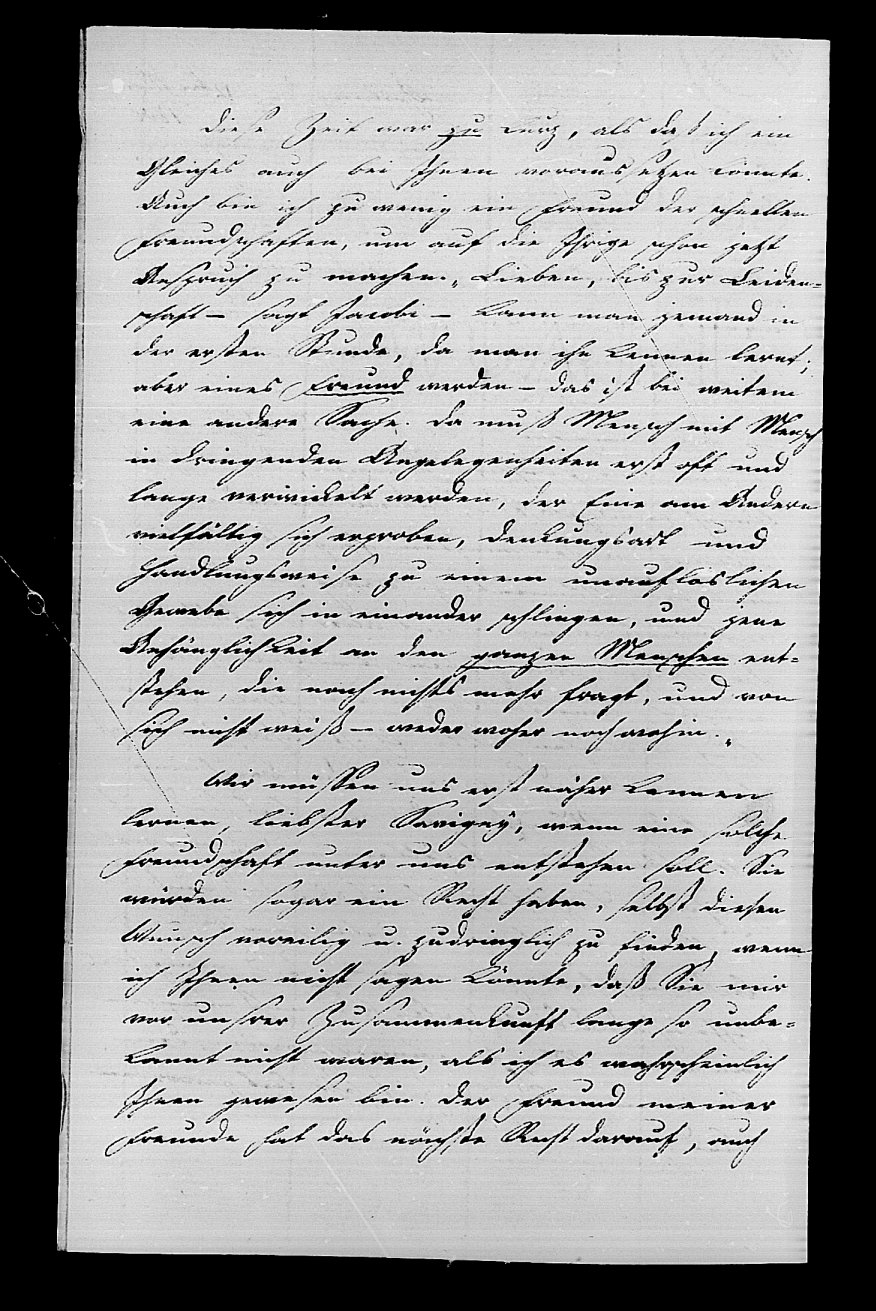 Diese Zeit war zu kurz, als daß ich ein
Gleiches auch bei Ihnen voraussetzen könnte.
Auch bin ich zu wenig ein Freund der schnellen
Freundschaften, um auf die Ihrige schon jetzt
Anspruch zu machen. „Lieben, bis zur Leiden=
schaft — sagt Jacobi — kann man jemand in
der ersten Stunde, da man ihn kennen lernt;
aber eines Freund werden — das ist bei weitem
eine andere Sache. Da muß Mensch mit Mensch
in dringenden Angelegenheiten erst oft und
lange verwickelt werden, der Eine am Andern
vielfältig sich erproben, Denkungsart und
Handlungsweise zu einem unauflöslichen
Gewebe sich in einander schlingen, und jene
Anhänglichkeit an den ganzen Menschen ent=
stehen, die nach nichts mehr fragt, und von
sich nicht weiß — weder woher noch wohin.„
Wir müssen uns erst näher kennen
lernen, liebster Savigny, wenn eine solche
Freundschaft unter uns entstehen soll. Sie
würden sogar ein Recht haben, selbst diesen
Wunsch voreilig u. zudringlich zu finden, wenn
ich Ihnen nicht sagen könnte, daß Sie mir
vor unsrer Zusammenkunft lange so unbe=
kannt nicht waren, als ich es wahrscheinlich
Ihnen gewesen bin. Der Freund meiner
Freunde hat das nächste Recht darauf, auch